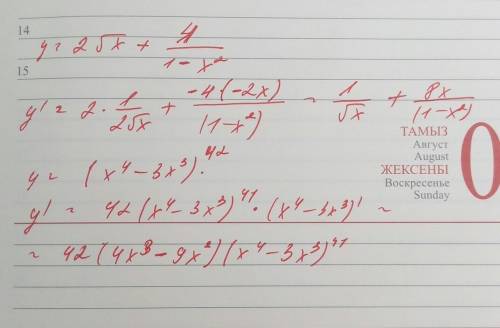 14
y = 2√x + 4/(1-x²)
15
y' = 2 · 1/(2√x) + -4·(-2x)/(1-x²) = 1/√x + 8x/(1-x²)
ТАМЫЗ
Август
August
ЖЕКСЕНБІ
Воскресенье
Sunday
0
y = (x⁴-3x³)⁴²
y' = 42(x⁴-3x³)⁴¹ · (x⁴-3x³)' =
= 42(4x³-9x²)(x⁴-3x³)⁴¹